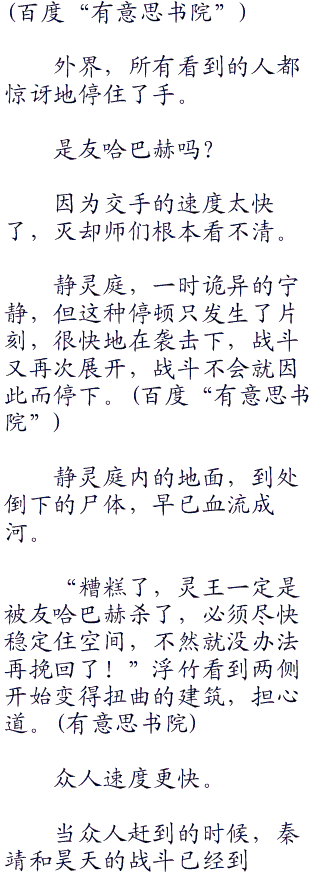 (百度“有意思书院”)
外界，所有看到的人都
惊讶地停住了手。
是友哈巴赫吗？
因为交手的速度太快
了，灭却师们根本看不清。
静灵庭，一时诡异的宁
静，但这种停顿只发生了片
刻，很快地在袭击下，战斗
又再次展开，战斗不会就因
此而停下。(百度“有意思书
院”)
静灵庭内的地面，到处
倒下的尸体，早已血流成
河。
“糟糕了，灵王一定是
被友哈巴赫杀了，必须尽快
稳定住空间，不然就没办法
再挽回了！”浮竹看到两侧
开始变得扭曲的建筑，担心
道。(有意思书院)
众人速度更快。
当众人赶到的时候，秦
靖和昊天的战斗已经到